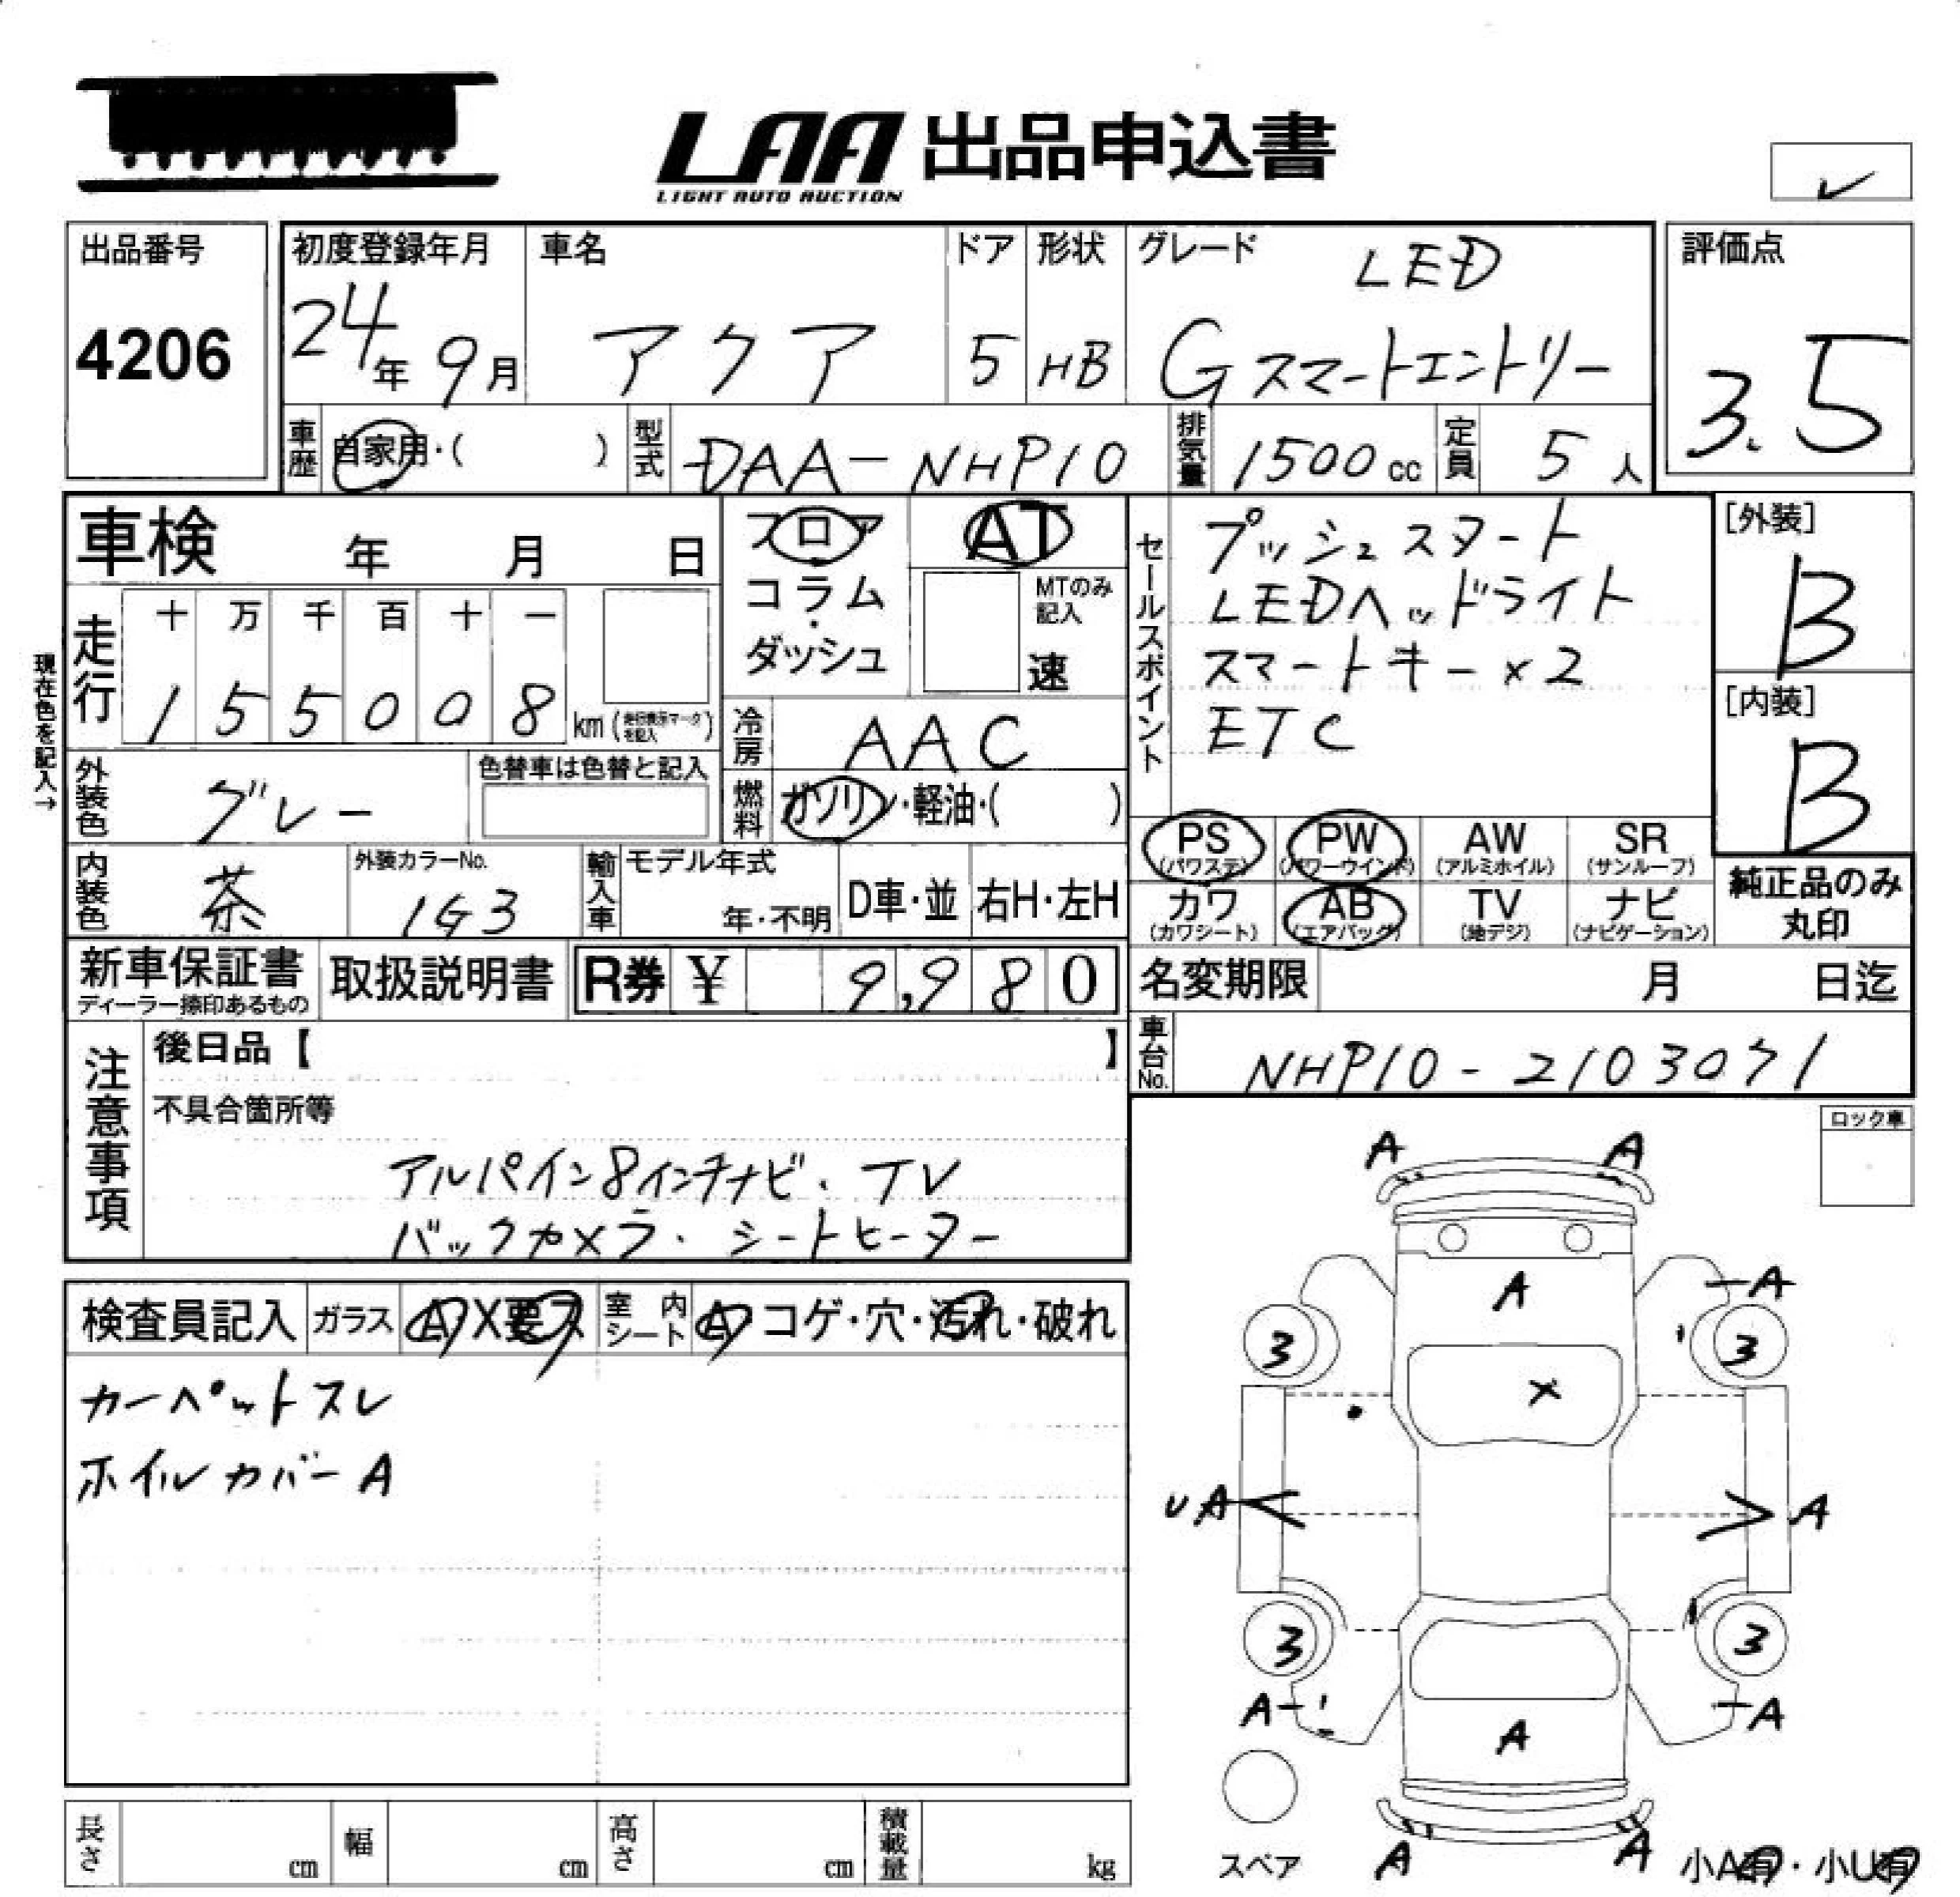 LAA 出品申込書
LIGHT AUTO AUCTION
レ
出品番号
4206
初度登録年月
24年 9月
車名
アクア
ドア
5
形状
HB
グレード
LED
Gスマートエントリー
評価点
3.5
車歴 自家用・( )
型式 DAA-NHP10
排気量 1500cc
定員 5人
車検 年 月 日
フロア
コラム
・
ダッシュ
AT
MTのみ
記入
速
セールスポイント
プッシュスタート
LEDヘッドライト
スマートキー×2
ETC
[外装]
B
[内装]
B
現在色を記入→
走行
十 万 千 百 十 一
1 5 5 0 0 8 km (走行表示マークを記入)
冷房 AAC
外装色 グレー
色替車は色替と記入
燃料 ガソリン・軽油・( )
PS (パワステ)
PW (パワーウインド)
AW (アルミホイル)
SR (サンルーフ)
内装色 茶
外装カラーNo.
1G3
輸入車 モデル年式
年・不明
D車・並
右H・左H
カワ (カワシート)
AB (エアバッグ)
TV (地デジ)
ナビ (ナビゲーション)
純正品のみ
丸印
新車保証書
ディーラー捺印あるもの
取扱説明書
R券 ¥ 9,980
名変期限 月 日迄
車台No. NHP10-2103071
注意事項
後日品【 】
不具合箇所等
アルパイン8インチナビ・TV
バックカメラ・シートヒーター
ロック車
検査員記入
ガラス A X 要ス
室内シート A コゲ・穴・汚れ・破れ
カーペットスレ
ホイルカバーA
A A
A
A
3 3
X
UA A
3 3
A A
A
A A
スペア
小A有・小U有
長さ cm
幅 cm
高さ cm
積載量 kg